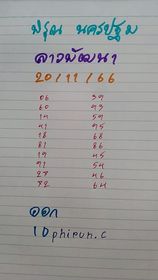 ปรุณ นครปฐม
ลาวพัฒนา
20/11/66
06 39
60 93
14 59
41 95
18 68
81 86
19 45
91 54
27 46
72 64
ออก
IDphirun.c